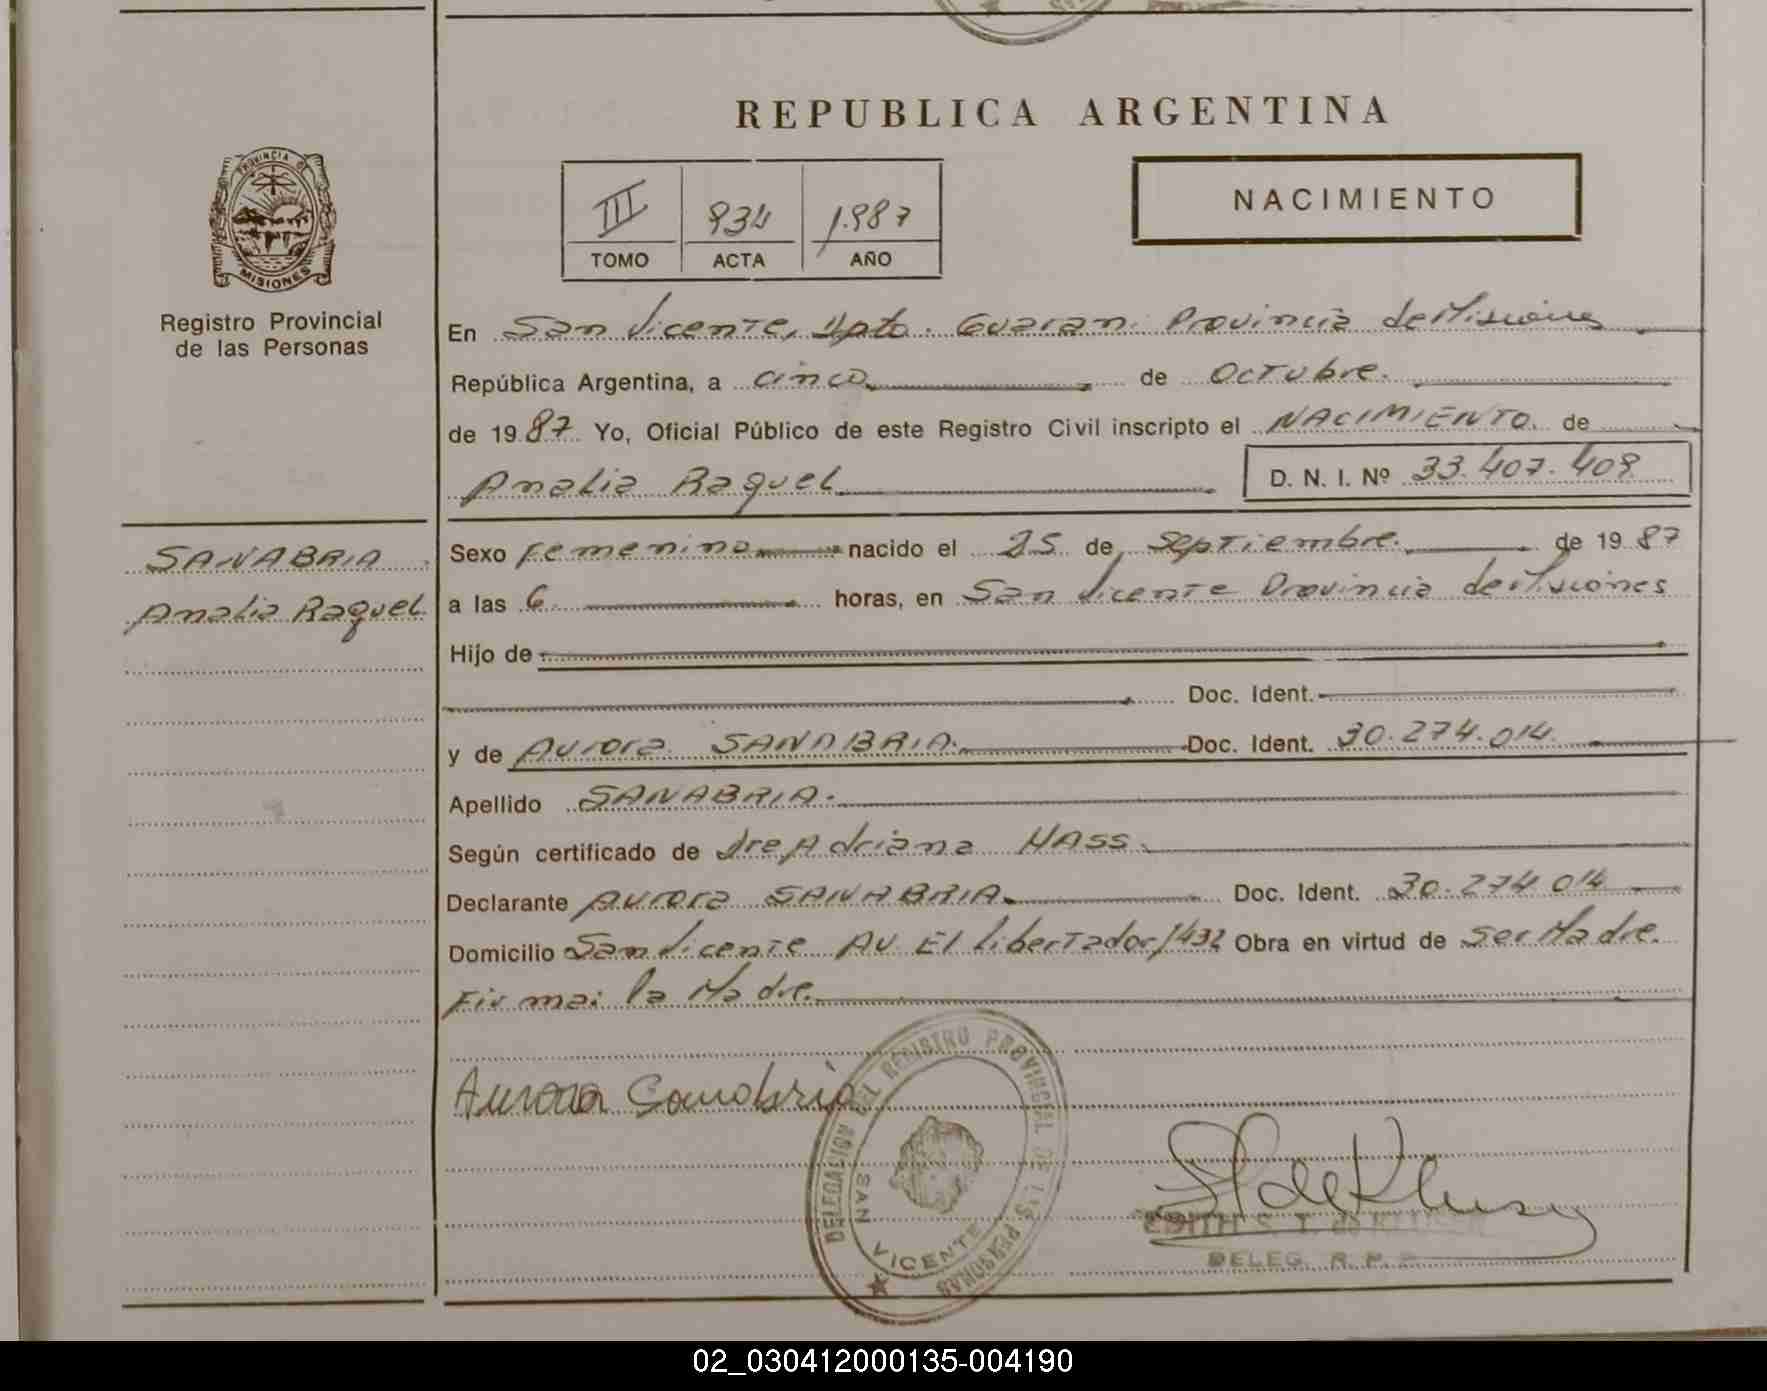 REPUBLICA ARGENTINA
PROVINCIA DE
MISIONES
Registro Provincial
de las Personas
III 934 1.987
TOMO ACTA AÑO
NACIMIENTO
En San Vicente, Dpto. Guaraní Provincia de Misiones
República Argentina, a cinco de Octubre.
de 1987 Yo, Oficial Público de este Registro Civil inscripto el NACIMIENTO. de
Analia Raquel D. N. I. Nº 33.407.409
SANABRIA
Analia Raquel
Sexo femenino nacido el 25 de Septiembre. de 1987
a las 6 horas, en San Vicente Provincia de Misiones
Hijo de
Doc. Ident.
y de Aurora SANABRIA. Doc. Ident. 30.274.014
Apellido SANABRIA.
Según certificado de Dre Adriana HASS.
Declarante Aurora SANABRIA. Doc. Ident. 30.274 014
Domicilio San Vicente Av. El Libertador 1432 Obra en virtud de ser Madre.
Firma: la Madre.
Aurora Sanabria
DELEGACION DEL REGISTRO PROVINCIAL DE LAS PERSONAS
SAN VICENTE
EDITH S. T. de KLUSEN
DELEG. R. P. P.
02_030412000135-004190